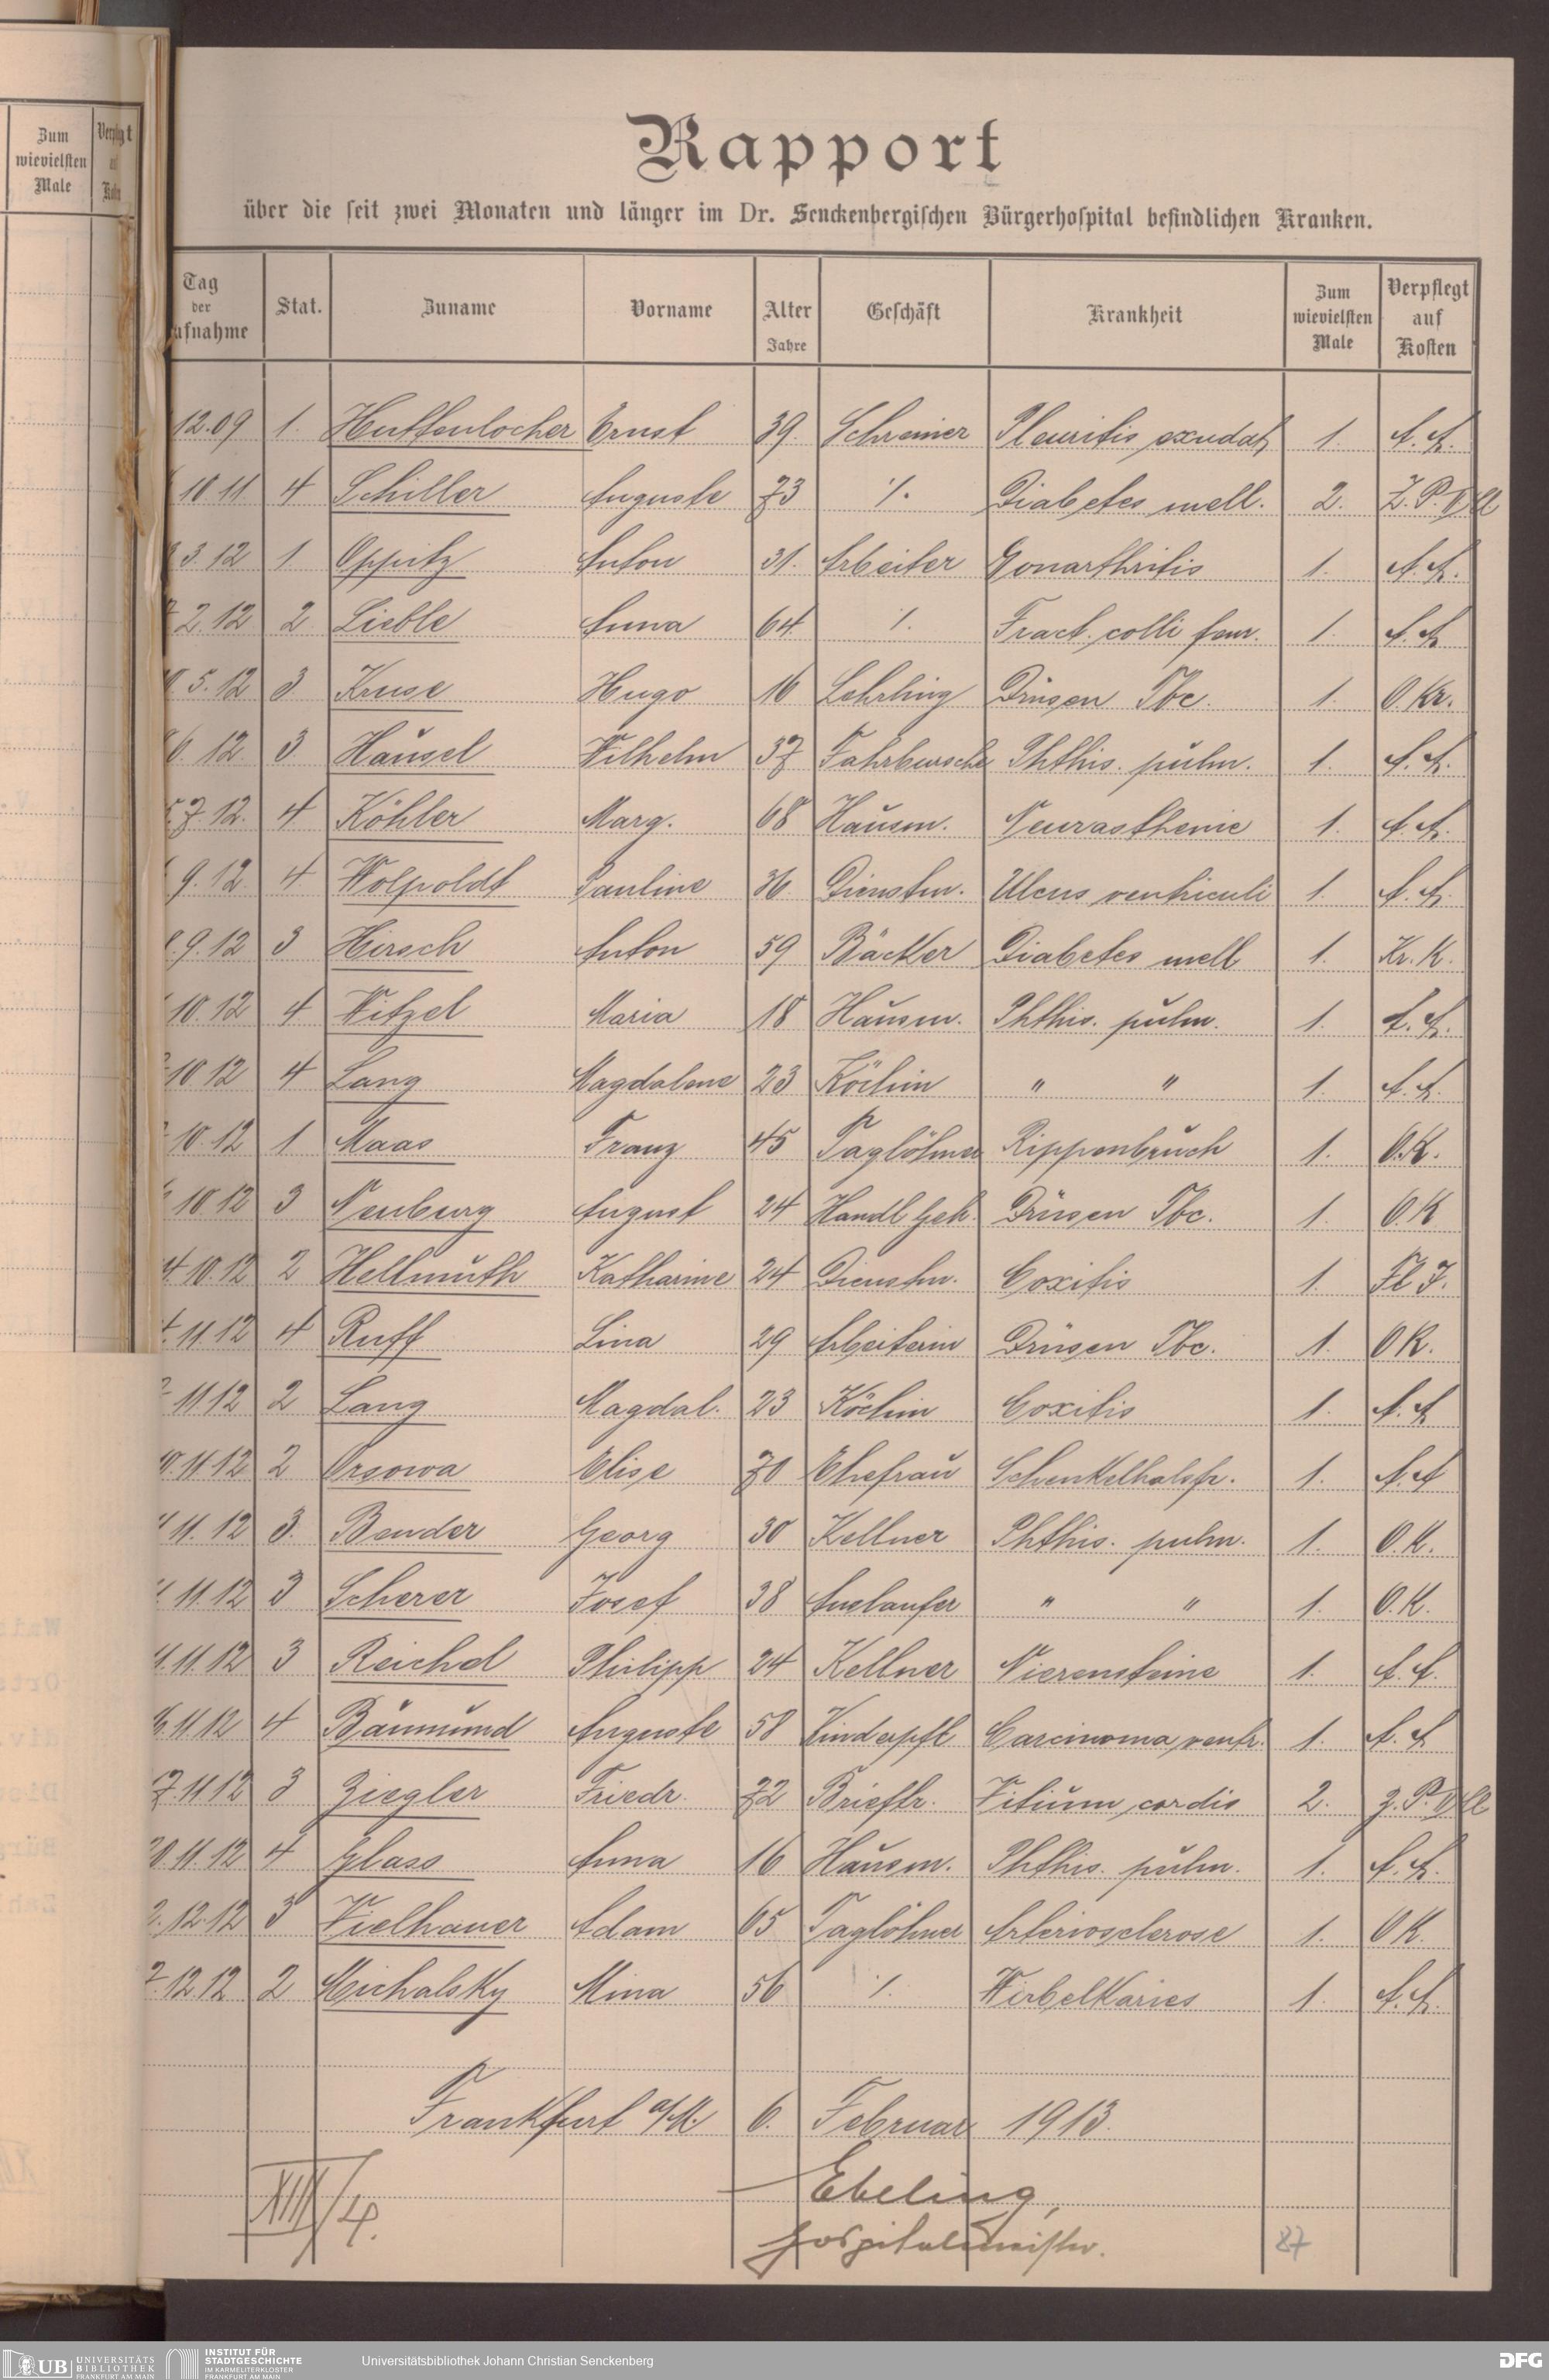 Zum
wievielsten
Male
Rapport
über die seit zwei Monaten und länger im Dr. Senckenbergischen Bürgerhospital befindlichen Kranken.
Tag der ufnahme Stat. Zuname Vorname Alter Jahre Geschäft Krankheit Zum wievielsten Male Verpflegt auf Kosten
12.09 1. Huttenlocher Ernst 39. Schreiner Pleuritis exsudat 1. A. A.
10 11. 4 Schiller Auguste 73 ·/. Diabetes mell. 2. Z. P.
3.12 1 Oppitz Anton 31. Arbeiter Gonarthritis 1. A. A.
2.12 2 Lieble Anna 64 ·/. Fract. colli fem. 1. A. A.
5.12 3 Kruse Hugo 16 Lehrling Drüsen Tbc. 1. O. Kr.
6. 12. 3 Häusel Wilhelm 37 Fahrbursche Phthis. pulm. 1. A. A.
7.12. 4 Köhler Marg. 68 Hausm. Neurasthenie 1. A. A.
9.12 4 Wolpoldt Pauline 36 Dienstm. Ulcus ventriculi 1. A. A.
9.12 3 Hirsch Anton 59 Bäcker Diabetes mell 1. Kr. K.
10.12 4 Witzel Maria 18 Hausm. Phthis. pulm. 1. A. A.
10 12 4 Lang Magdalene 23 Köchin " " 1. A. A.
10.12 1 Maas Franz 45 Taglöhner Rippenbruch 1. O. K.
10 12 3 Neuburg August 24 Handl Geh. Drüsen Tbc. 1. O. K
4.10.12 2 Hellmuth Katharine 24 Dienstm. Coxitis 1. Fl J.
11 12 4 Ruff Lina 29 Arbeiterin Drüsen Tbc. 1. O K.
11 12 2 Lang Magdal. 23 Köchin Coxitis 1. A. A
11 12 2 Orsowa Elise 70 Ehefrau Schenkelhalsfr. 1. A. A
11. 12 3. Bender Georg 30 Kellner Phthis. pulm. 1. O. K.
11 12 3 Scherer Josef 38 Auslaufer " " 1. O. K.
11.12 3 Reichel Philipp 24 Kellner Nierensteine 1. A. A.
6.11.12 4 Bäumund Auguste 58 Kinderpfl Carcinoma ventr. 1. A. A
7.11 12 3 Ziegler Friedr. 72 Brieftr. Vitium cordis 2. Z. P.
20 11 12 4 Glass Anna 16 Hausm. Phthis. pulm. 1. A. A.
2.12.12 3 Vielhauer Adam 65 Taglöhner Arteriosclerose 1. O K.
12 12 2 Michalsky Mina 56 ·/. Wirbelkaries 1. A. A.
Frankfurt a/M. 6. Februar 1913.
Ebeling
XIII/4. Hospitalmeister. 87
UB UNIVERSITÄTS BIBLIOTHEK FRANKFURT AM MAIN
INSTITUT FÜR STADTGESCHICHTE IM KARMELITERKLOSTER FRANKFURT AM MAIN
Universitätsbibliothek Johann Christian Senckenberg
DFG